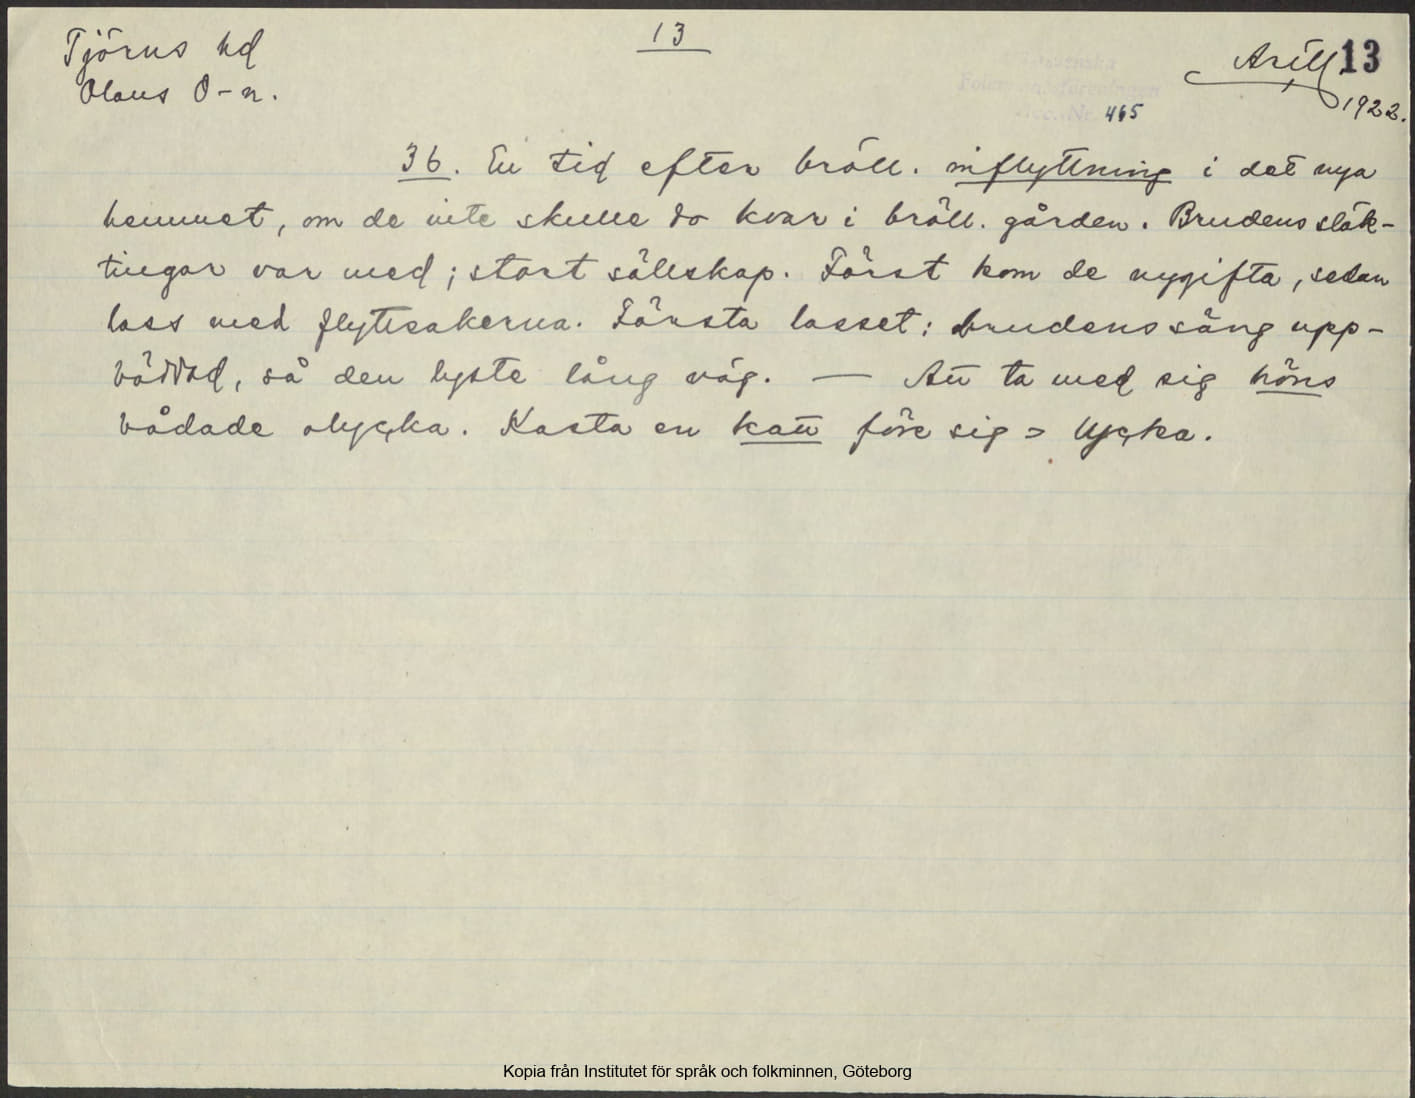 Tjörns hd
13
Arill 13
Olaus O-n.
1922.
465
36. En tid efter bröll. inflyttning i det nya
hemmet, om de inte skulle bo kvar i bröll. gården. Brudens släk-
tingar var med; stort sällskap. Först kom de nygifta, sedan
lass med flyttsakerna. Första lasset: brudens säng upp-
bäddad, så den lyste lång väg. — Att ta med sig höns
bådade olycka. Kasta en katt före sig = lycka.
Kopia från Institutet för språk och folkminnen, Göteborg